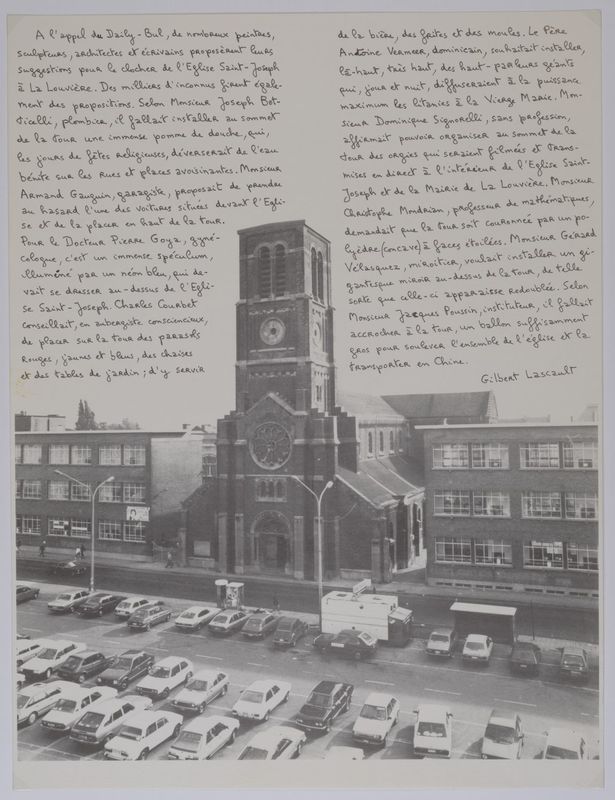 A l'appel du Daily-Bul, de nombreux peintres,
sculpteurs, architectes et écrivains proposèrent leurs
suggestions pour le clocher de l'Eglise Saint-Joseph
à La Louvière. Des milliers d'inconnus firent égale-
ment des propositions. Selon Monsieur Joseph Bot-
ticelli, plombier, il fallait installer au sommet
de la tour une immense pomme de douche, qui,
les jours de fêtes religieuses, déverserait de l'eau
bénite sur les rues et places avoisinantes. Monsieur
Armand Gauguin, garagiste, proposait de prendre
au hasard l'une des voitures situées devant l'Egli-
se et de la placer en haut de la tour.
Pour le Docteur Pierre Goya, gyné-
cologue, c'est un immense spéculum,
illuminé par un néon bleu, qui de-
vait se dresser au-dessus de l'Egli-
se Saint-Joseph. Charles Courbet
conseillait, en aubergiste consciencieux,
de placer sur la tour des parasols
rouges, jaunes et bleus, des chaises
et des tables de jardin ; d'y servir
de la bière, des frites et des moules. Le Père
Antoine Vermeer, dominicain, souhaitait installer,
là-haut, très haut, des haut-parleurs géants
qui, jour et nuit, diffuseraient à la puissance
maximum les litanies à la Vierge Marie. Mon-
sieur Dominique Signorelli, sans profession,
affirmait pouvoir organiser au sommet de la
tour des orgies qui seraient filmées et trans-
mises en direct à l'intérieur de l'Eglise Saint-
Joseph et de la Mairie de La Louvière. Monsieur
Christophe Mondrian, professeur de mathématiques,
demandait que la tour soit couronnée par un po-
lyèdre (concave) à faces étoilées. Monsieur Gérard
Vélasquez, miroitier, voulait installer un gi-
gantesque miroir au-dessus de la tour, de telle
sorte que celle-ci apparaisse redoublée. Selon
Monsieur Jacques Poussin, instituteur, il fallait
accrocher à la tour, un ballon suffisamment
gros pour soulever l'ensemble de l'église et la
transporter en Chine.
Gilbert Lascault